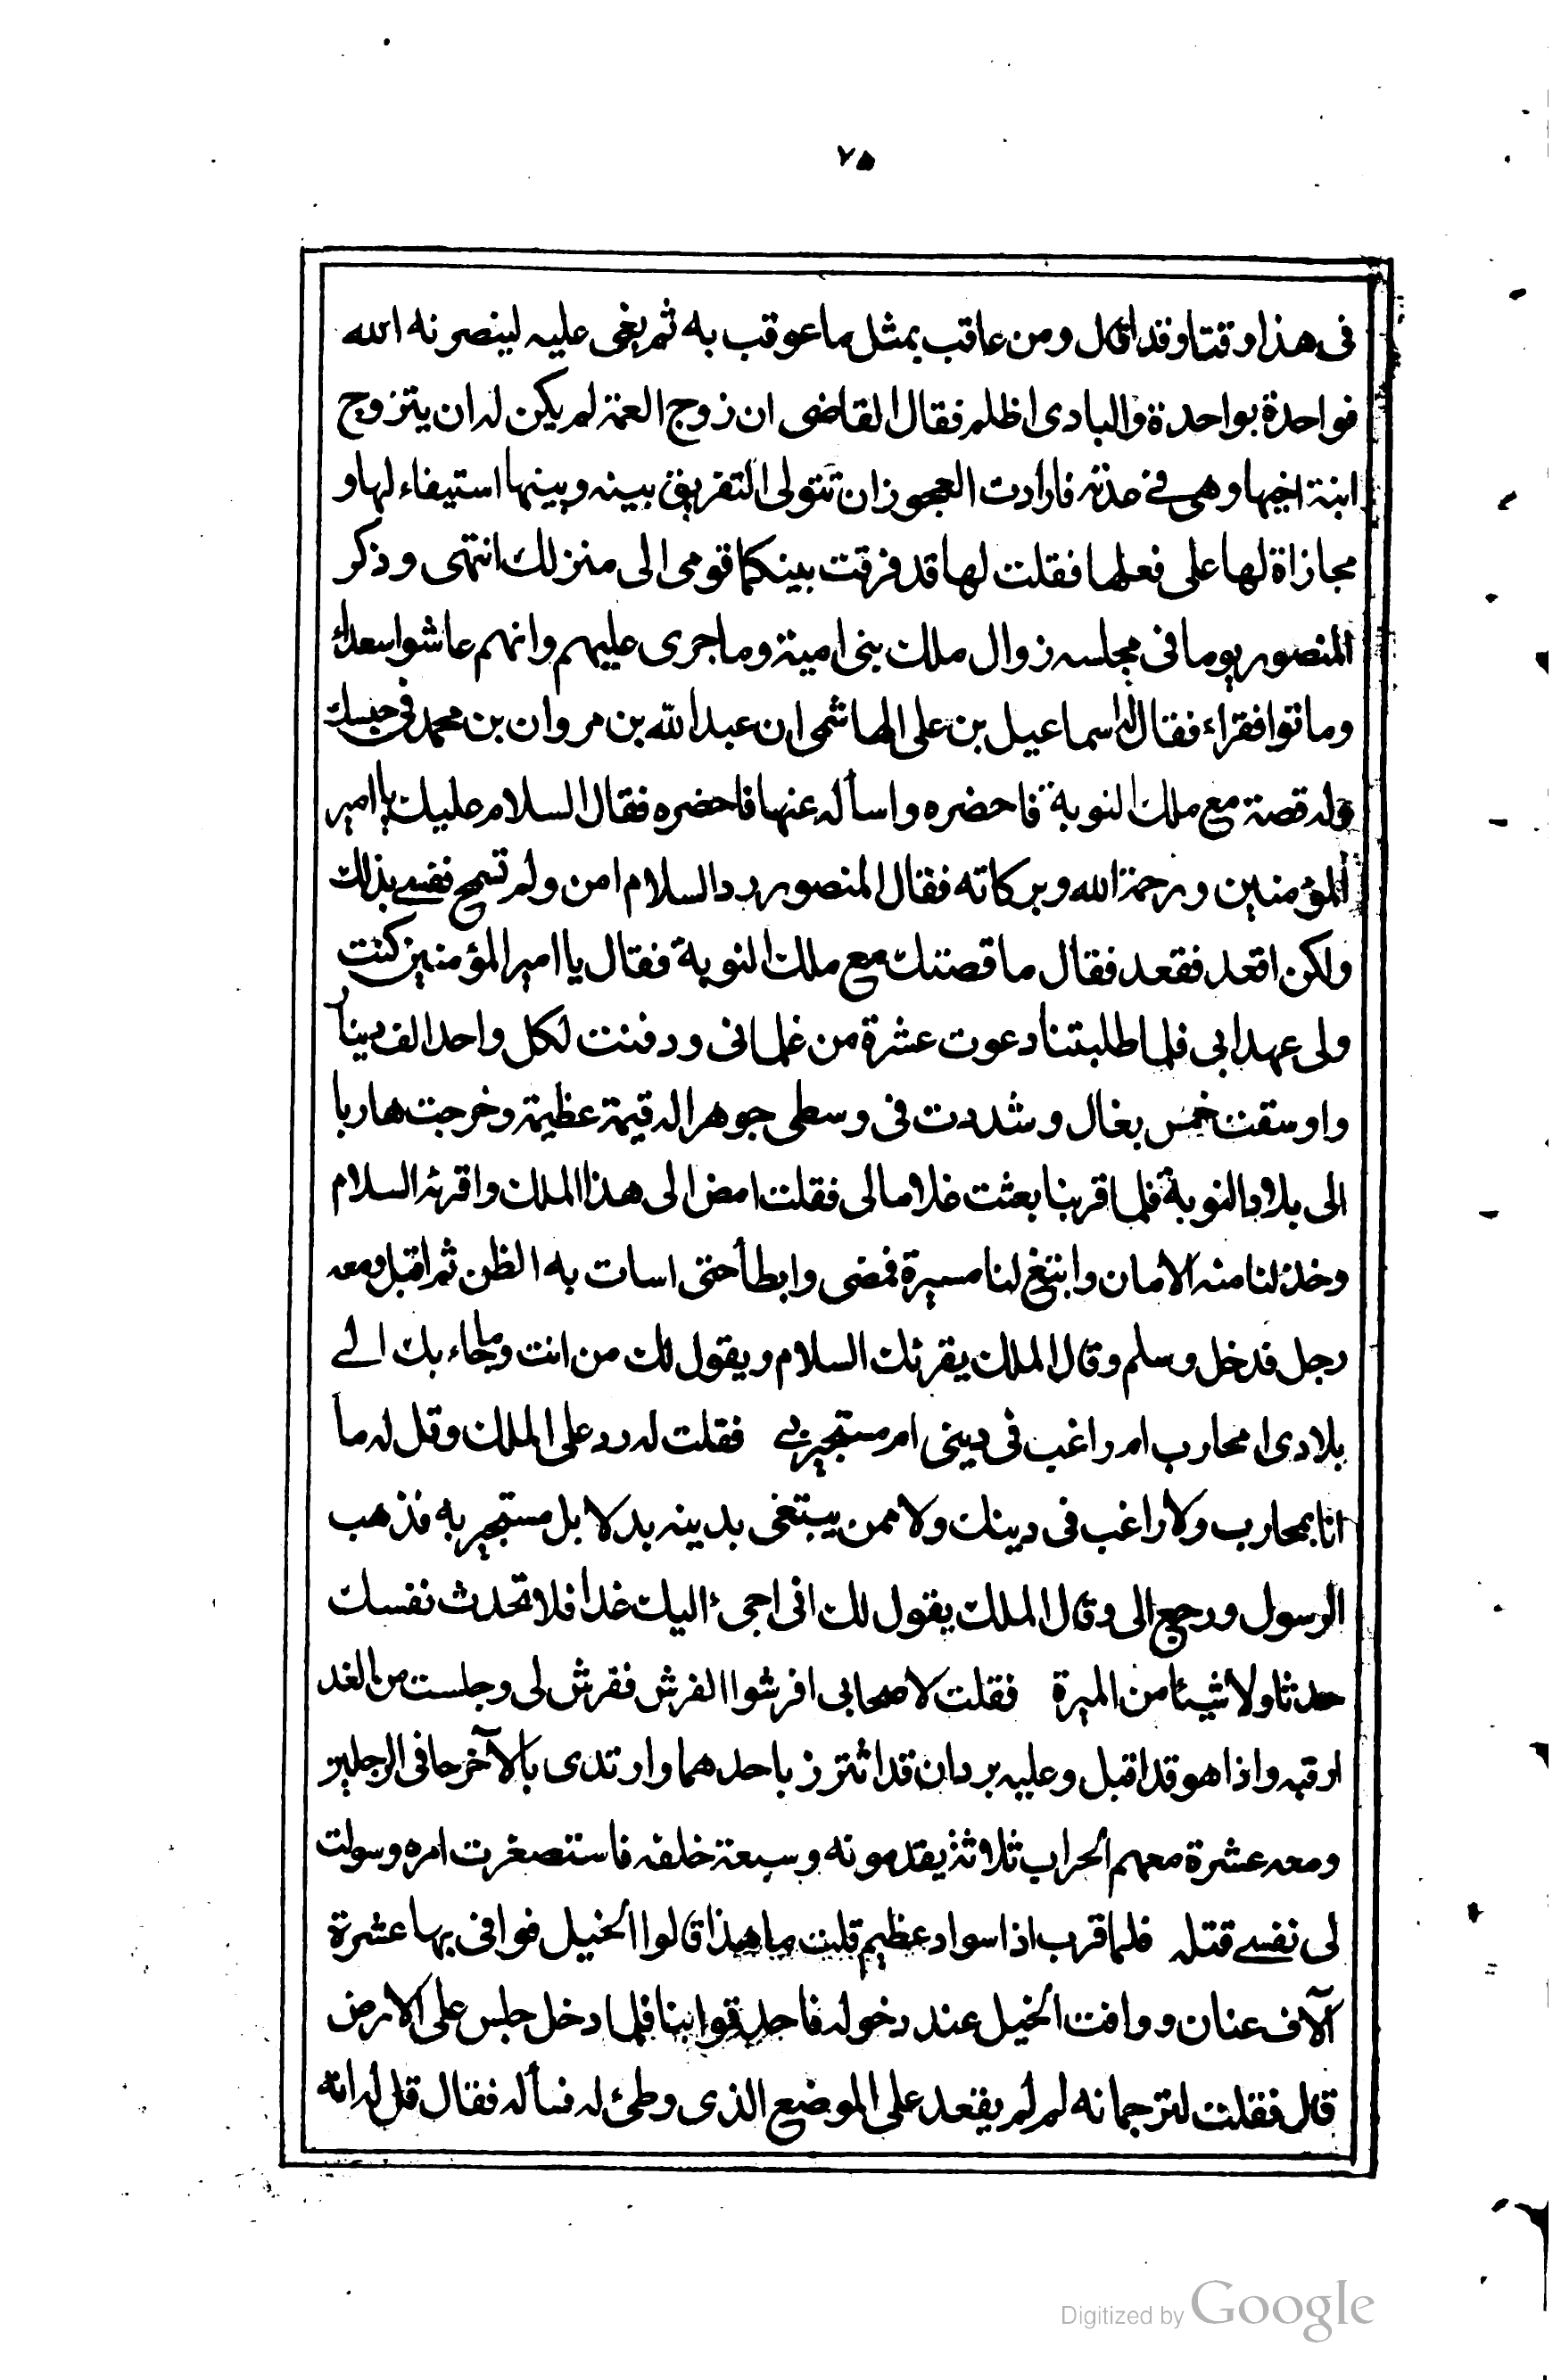 ٧٥
فى هذا وقتا وقد اقال ومن عاقب بمثل ما عوقب به ثم بغى عليه لينصرنه الله
فواحدة بواحدة والبادى اظلم فقال القاضى ان زوج العمة لم يكن له ان يتزوج
ابنة اخيها وهى فى عدته فارادت العجوز ان تتولى التفريق بينه وبينها استيفاء لها و
مجازاة لها على فعلها فقلت لها قد فرقت بينكما قومى الى منزلك انتهى وذكر
المنصور يوما فى مجلسه زوال ملك بنى امية وما جرى عليهم وانهم عاشوا سعداء
وماتوا فقراء فقال له اسماعيل بن على الهاشمى ان عبد الله بن مروان بن محمد فى حبسك
وله قصة مع ملك النوبة فاحضره واسأله عنها فاحضره فقال السلام عليك يا امير
المؤمنين ورحمة الله وبركاته فقال المنصور رد السلام امن ولم تسمح نفسى بذلك
ولكن اقعد فقعد فقال ما قصتك مع ملك النوبة فقال يا امير المؤمنين كنت
ولى عهد ابى فلما طلبتنا دعوت عشرة من غلمانى ودفنت لكل واحد الف دينار
واوسقت خمس بغال وشددت فى وسطى جوهرا له قيمة عظيمة وخرجت هاربا
الى بلاد النوبة فلما قربنا بعثت غلاما لى فقلت امض الى هذا الملك واقرئه السلام
وخذ لنا منه الامان وابتغ لنا مسيرة فمضى وابطأ حتى اسات به الظن ثم اقبل ومعه
رجل فدخل وسلم وقال الملك يقرئك السلام ويقول لك من انت وما جاء بك الى
بلادى ا محارب ام راغب فى دينى ام مستجير بى فقلت له رد على الملك وقل له ما
انا بمحارب ولا راغب فى دينك ولا ممن يبتغى بدينه بدلا بل مستجير به فذهب
الرسول ورجع الى وقال الملك يقول لك انى اجىء اليك غدا فلا تحدث نفسك
حدثا ولا شيئا من الميرة فقلت لاصحابى افرشوا الفرش ففرش لى وجلست من الغد
ارقبه واذا هو قد اقبل وعليه بردان قد اتزر باحدهما وارتدى بالآخر حافى الرجلين
ومعه عشرة معهم الحراب ثلاثة يقدمونه وسبعة خلفه فاستصغرت امره وسولت
لى نفسى قتله فلما قرب اذا سواد عظيم قلت ما هذا قالوا الخيل فوافى بها عشرة
آلاف عنان ووافت الخيل عند دخوله فاحدقوا بنا فلما دخل جلس على الارض
قال فقلت لترجمانه لم لم يقعد على الموضع الذى وطئ له فسأله فقال قل له انه
Digitized by Google